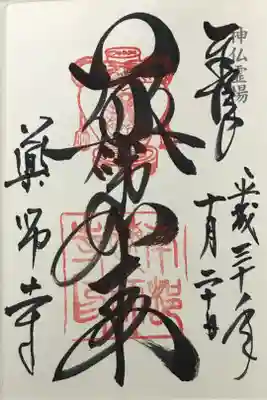 神仏霊場
奉拝
平成三十年
十月二十日
薬師如来
薬師寺